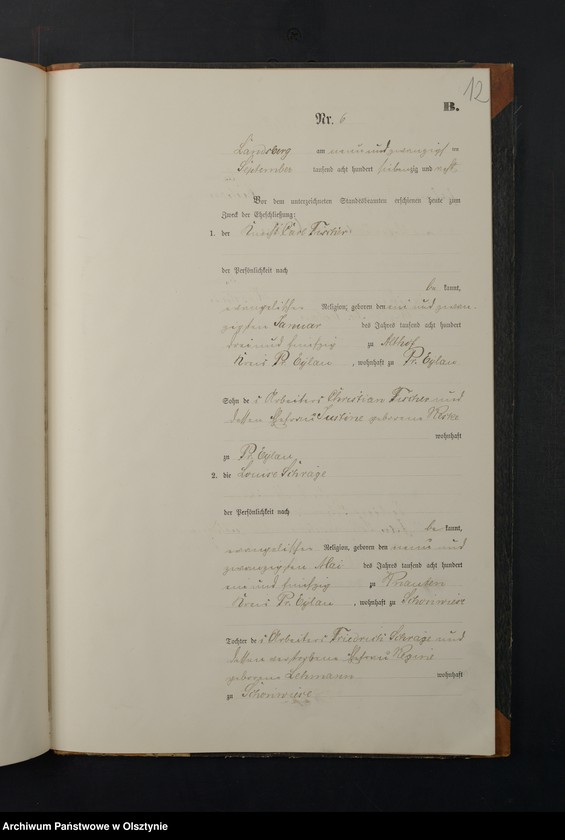 12
B.
Nr. 6
Landsberg am neun und zwanzigsten
September tausend acht hundert siebenzig und acht
Vor dem unterzeichneten Standesbeamten erschienen heute zum
Zweck der Eheschließung:
1. der Knecht Carl Fischer
der Persönlichkeit nach
be kannt,
evangelischer Religion, geboren den ein und zwan-
zigsten Januar des Jahres tausend acht hundert
drei und fünfzig zu Althof
Kreis Pr. Eylau, wohnhaft zu Pr. Eylau
Sohn des Arbeiters Christian Fischer und
dessen Ehefrau Justine geborene
wohnhaft
zu Pr. Eylau
2. die Louise Schräge
der Persönlichkeit nach
be kannt,
evangelischer Religion, geboren den neun und
zwanzigsten Mai des Jahres tausend acht hundert
ein und fünfzig zu
Kreis Pr. Eylau, wohnhaft zu Schönwiese
Tochter des Arbeiters Friedrich Schräge und
dessen verstorbene Ehefrau Regine
geborene Lehmann wohnhaft
zu Schönwiese
Archiwum Państwowe w Olsztynie